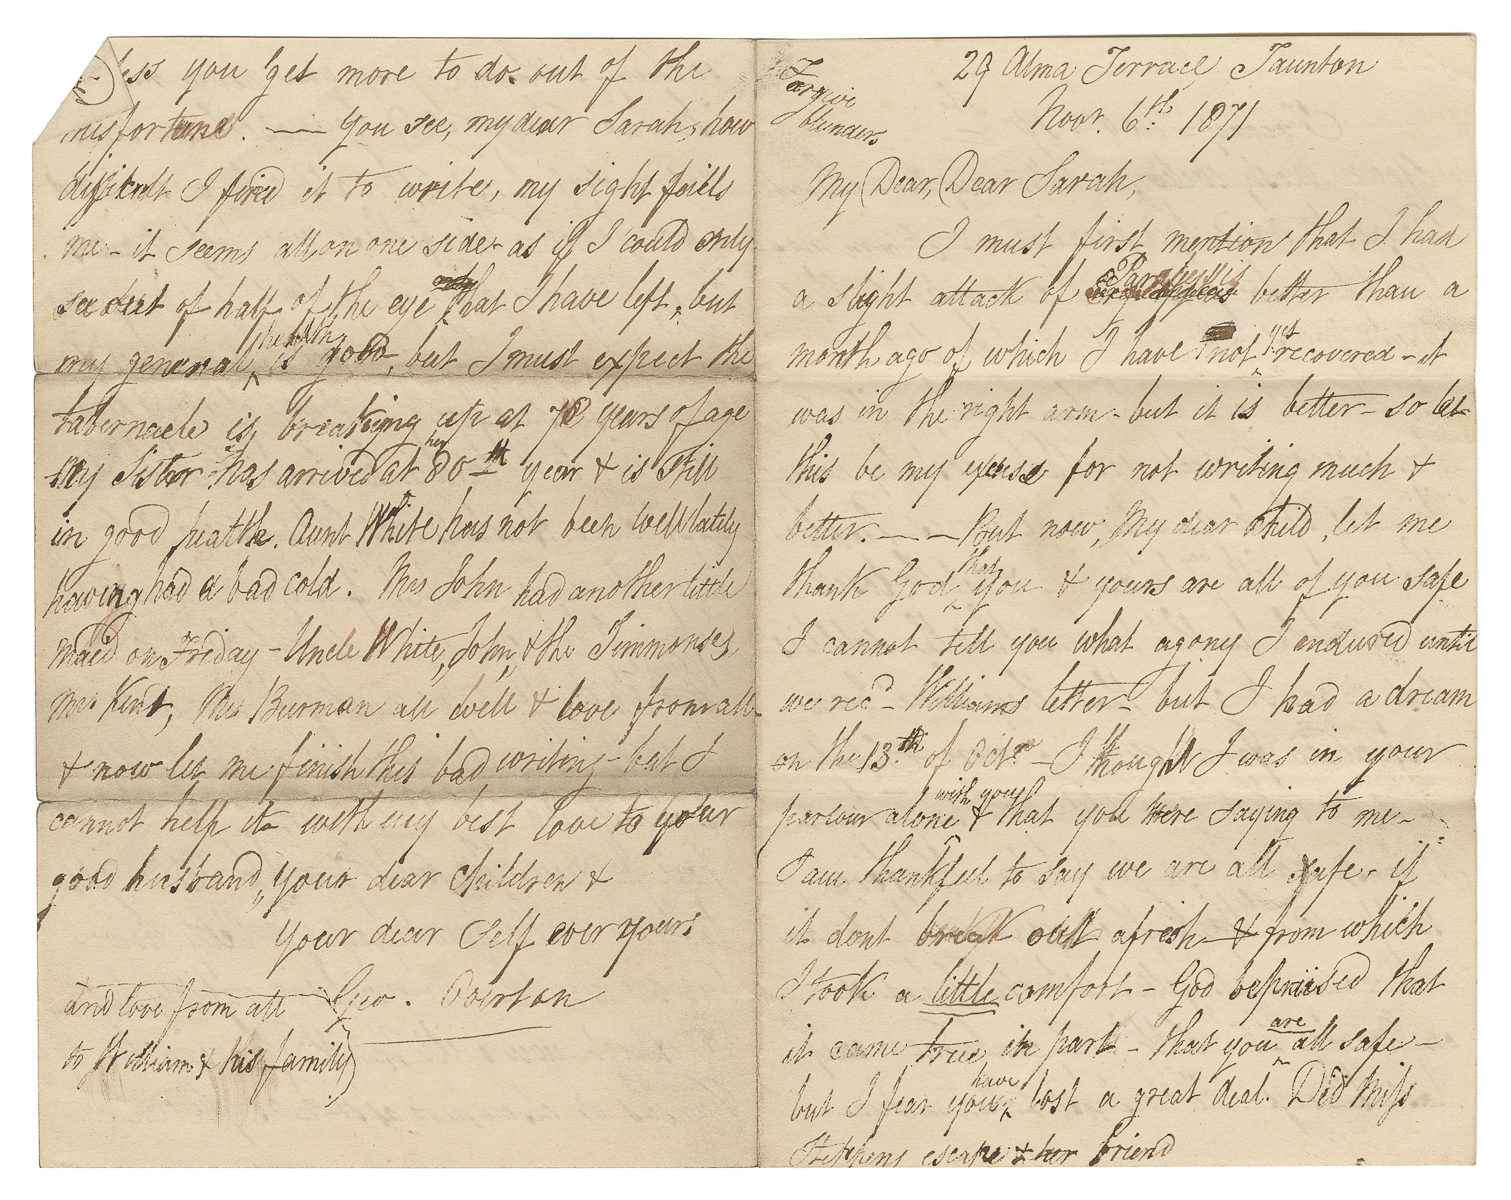 29 Alma Terrace, Taunton
Novr. 6th. 1871
Forgive
blunders
My Dear, Dear Sarah,
I must first mention that I had
a slight attack of Paralysis better than a
month ago of which I have not yet recovered - it
was in the right arm - but it is better - so let
this be my excuse for not writing much &
better. — — But now, My dear Child, let me
thank God, that you & yours are all of you safe
I cannot tell you what agony I endured until
we recd - Williams letter - but I had a dream
on the 13th of Octr - I thought I was in your
parlour alone with you & that you were saying to me -
I am thankful to say we are all safe - if
it dont break out afresh - & from which
I took a little comfort - God be praised that
it came true in part - that you are all safe -
but I fear you have lost a great deal. Did Miss
Stephens escape & her friend
less you get more to do out of the
misfortune. — You see, my dear Sarah, how
difficult I find it to write, my sight fails
me - it seems all on one side - as if I could only
see out of half of the eye that I have left, but
my general health is good, but I must expect the
tabernacle is breaking up at 78 years of age
My Sister has arrived at her 80th year & is still
in good health. Aunt White has not been well lately
having had a bad cold. Mrs John had another little
maid on Friday - Uncle White, John, & the Timmonses,
Mrs Kent, Mrs Burman all well & love from all
& now let me finish this bad writing - but I
cannot help it - with my best love to your
good husband, your dear Children &
your dear Self ever yours
Geo. Overton
and love from all
to William & his family